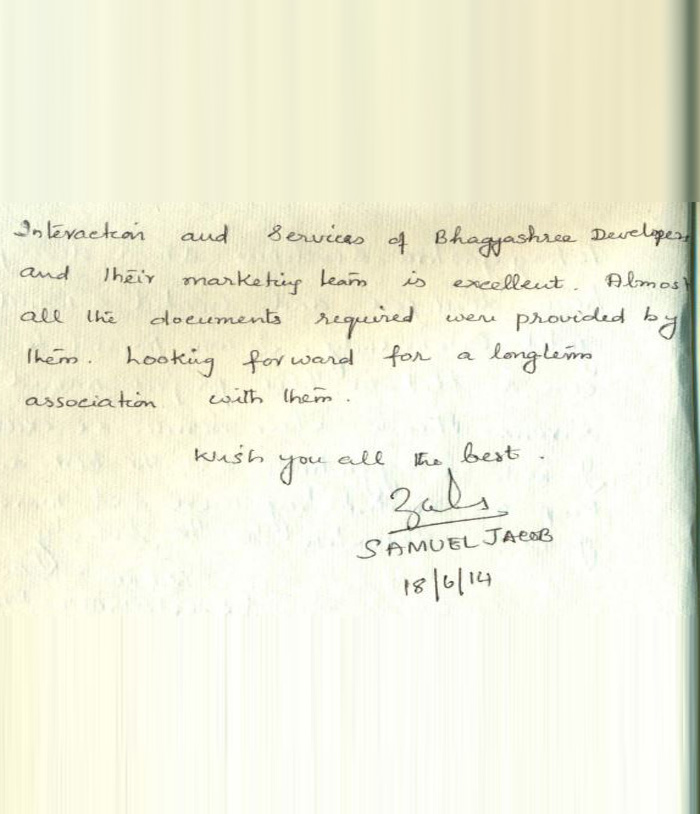 Interaction and Services of Bhagyashree Developers
and their marketing team is excellent. Almost
all the documents required were provided by
them. Looking forward for a longterm
association with them.
Wish you all the best.
SAMUEL JACOB
18/6/14